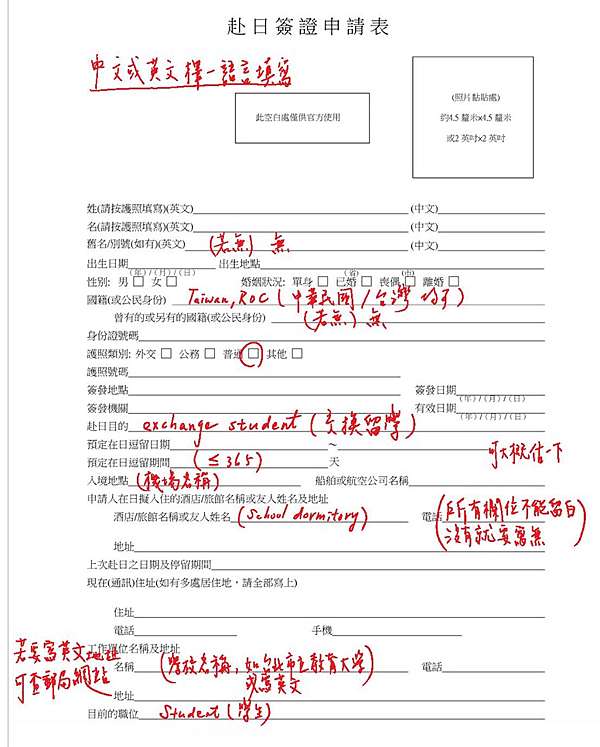 赴日簽證申請表
中文或英文擇一語言填寫
此空白處僅供官方使用
(照片黏貼處)
約4.5 釐米x4.5 釐米
或2 英吋x2 英吋
姓(請按護照填寫)(英文) (中文)
名(請按護照填寫)(英文) (中文)
舊名/別號(如有)(英文) (若無) 無 (中文)
出生日期 出生地點
(年)/(月)/(日) (省) (市)
性別: 男 □ 女 □ 婚姻狀況: 單身 □ 已婚 □ 喪偶 □ 離婚 □
國籍(或公民身份) Taiwan, ROC (中華民國/台灣 均可)
曾有的或另有的國籍(或公民身份) (若無) 無
身份證號碼
護照類別: 外交 □ 公務 □ 普通 □ 其他 □
護照號碼
簽發地點 簽發日期
(年)/(月)/(日)
簽發機關 有效日期
(年)/(月)/(日)
赴日目的 exchange student (交換留學)
預定在日逗留日期 ~
預定在日逗留期間 (≤365) 天
可大概估一下
入境地點 (機場名稱) 船舶或航空公司名稱
申請人在日擬入住的酒店/旅館名稱或友人姓名及地址
酒店/旅館名稱或友人姓名 (School dormitory) 電話
(所有欄位不能留白
沒有就要寫無)
地址
上次赴日之日期及停留期間
現在(通訊)住址(如有多處居住地，請全部寫上)
住址
電話 手機
工作單位名稱及地址
若要寫英文地址
可查郵局網站
名稱 (學校名稱，如台北市立教育大學) 電話
或寫英文
地址
目前的職位 Student (學生)